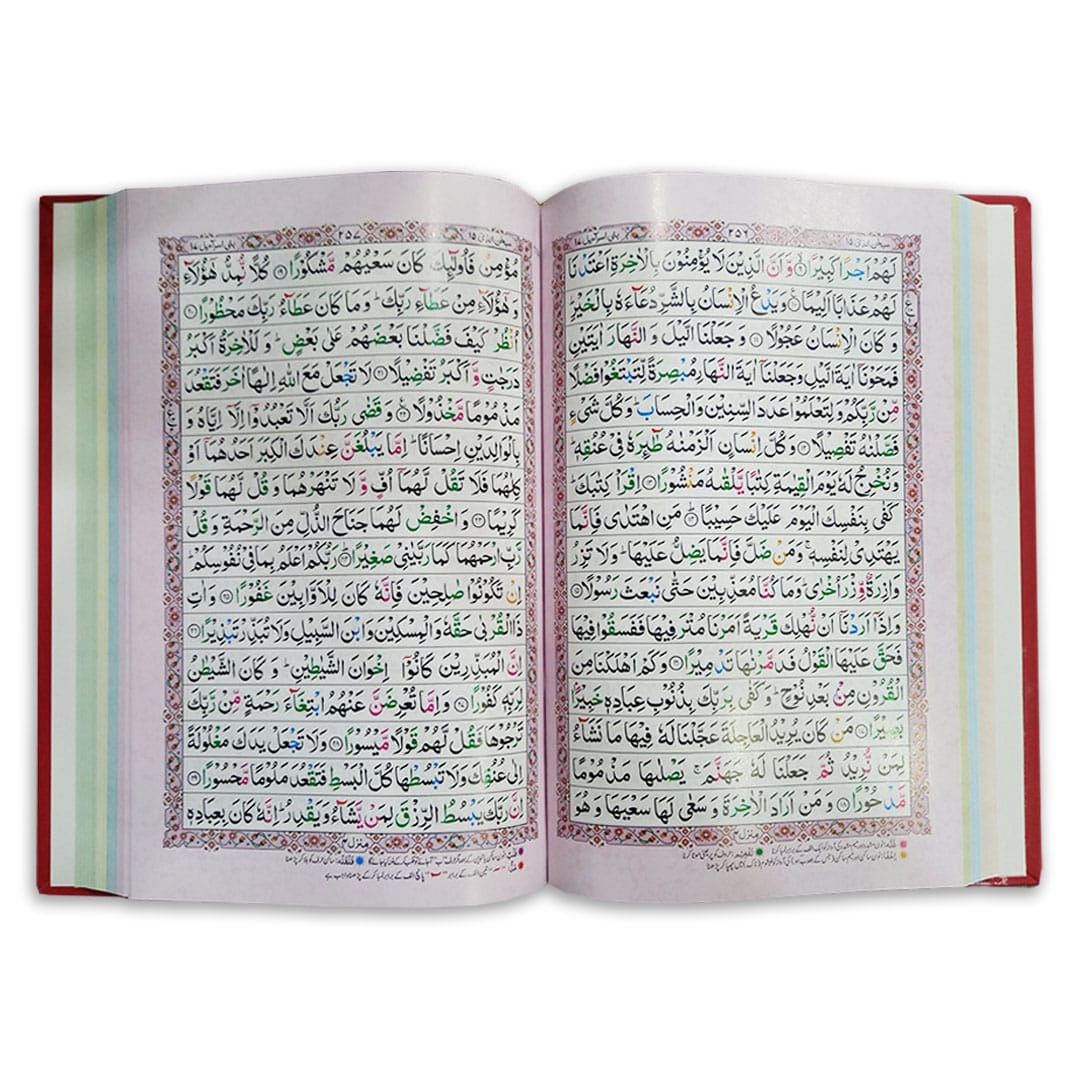 بنی اسرآءیل ١٧
٢٥٦
سبحٰن الذی ١٥
لَهُمْ اَجْرًا كَبِيْرًا ۙ﴿۹﴾ وَّ اَنَّ الَّذِيْنَ لَا يُؤْمِنُوْنَ بِالْاٰخِرَةِ اَعْتَدْنَا
لَهُمْ عَذَابًا اَلِيْمًا ﴿۱۰﴾ وَ يَدْعُ الْاِنْسَانُ بِالشَّرِّ دُعَآءَهٗ بِالْخَيْرِ ؕ
وَ كَانَ الْاِنْسَانُ عَجُوْلًا ﴿۱۱﴾ وَ جَعَلْنَا الَّيْلَ وَ النَّهَارَ اٰيَتَيْنِ
فَمَحَوْنَاۤ اٰيَةَ الَّيْلِ وَجَعَلْنَاۤ اٰيَةَ النَّهَارِ مُبْصِرَةً لِّتَبْتَغُوْا فَضْلًا
مِّنْ رَّبِّكُمْ وَ لِتَعْلَمُوْا عَدَدَ السِّنِيْنَ وَ الْحِسَابَ ؕ وَ كُلَّ شَيْءٍ
فَصَّلْنٰهُ تَفْصِيْلًا ﴿۱۲﴾ وَ كُلَّ اِنْسَانٍ اَلْزَمْنٰهُ طٰٓئِرَهٗ فِيْ عُنُقِهٖ ؕ
وَ نُخْرِجُ لَهٗ يَوْمَ الْقِيٰمَةِ كِتٰبًا يَّلْقٰىهُ مَنْشُوْرًا ﴿۱۳﴾ اِقْرَاْ كِتٰبَكَ ؕ
كَفٰى بِنَفْسِكَ الْيَوْمَ عَلَيْكَ حَسِيْبًا ﴿۱۴﴾ مَنِ اهْتَدٰى فَاِنَّمَا
يَهْتَدِيْ لِنَفْسِهٖ ۚ وَ مَنْ ضَلَّ فَاِنَّمَا يَضِلُّ عَلَيْهَا ؕ وَ لَا تَزِرُ
وَازِرَةٌ وِّزْرَ اُخْرٰى ؕ وَ مَا كُنَّا مُعَذِّبِيْنَ حَتّٰى نَبْعَثَ رَسُوْلًا ﴿۱۵﴾
وَ اِذَاۤ اَرَدْنَاۤ اَنْ نُّهْلِكَ قَرْيَةً اَمَرْنَا مُتْرَفِيْهَا فَفَسَقُوْا فِيْهَا
فَحَقَّ عَلَيْهَا الْقَوْلُ فَدَمَّرْنٰهَا تَدْمِيْرًا ﴿۱۶﴾ وَ كَمْ اَهْلَكْنَا مِنَ
الْقُرُوْنِ مِنْۢ بَعْدِ نُوْحٍ ؕ وَ كَفٰى بِرَبِّكَ بِذُنُوْبِ عِبَادِهٖ خَبِيْرًۢا
بَصِيْرًا ﴿۱۷﴾ مَنْ كَانَ يُرِيْدُ الْعَاجِلَةَ عَجَّلْنَا لَهٗ فِيْهَا مَا نَشَآءُ
لِمَنْ نُّرِيْدُ ثُمَّ جَعَلْنَا لَهٗ جَهَنَّمَ ۚ يَصْلٰىهَا مَذْمُوْمًا
مَّدْحُوْرًا ﴿۱۸﴾ وَ مَنْ اَرَادَ الْاٰخِرَةَ وَ سَعٰى لَهَا سَعْيَهَا وَ هُوَ
منزل ۴
بنی اسرآءیل ١٧
٢٥٧
سبحٰن الذی ١٥
مُؤْمِنٌ فَاُولٰٓئِكَ كَانَ سَعْيُهُمْ مَّشْكُوْرًا ﴿۱۹﴾ كُلًّا نُّمِدُّ هٰۤؤُلَآءِ
وَ هٰۤؤُلَآءِ مِنْ عَطَآءِ رَبِّكَ ؕ وَ مَا كَانَ عَطَآءُ رَبِّكَ مَحْظُوْرًا ﴿۲۰﴾
اُنْظُرْ كَيْفَ فَضَّلْنَا بَعْضَهُمْ عَلٰى بَعْضٍ ؕ وَ لَلْاٰخِرَةُ اَكْبَرُ
دَرَجٰتٍ وَّ اَكْبَرُ تَفْضِيْلًا ﴿۲۱﴾ لَا تَجْعَلْ مَعَ اللّٰهِ اِلٰهًا اٰخَرَ فَتَقْعُدَ
مَذْمُوْمًا مَّخْذُوْلًا ﴿۲۲﴾ وَ قَضٰى رَبُّكَ اَلَّا تَعْبُدُوْۤا اِلَّاۤ اِيَّاهُ وَ
بِالْوَالِدَيْنِ اِحْسَانًا ؕ اِمَّا يَبْلُغَنَّ عِنْدَكَ الْكِبَرَ اَحَدُهُمَاۤ اَوْ
كِلٰهُمَا فَلَا تَقُلْ لَّهُمَاۤ اُفٍّ وَّ لَا تَنْهَرْهُمَا وَ قُلْ لَّهُمَا قَوْلًا
كَرِيْمًا ﴿۲۳﴾ وَ اخْفِضْ لَهُمَا جَنَاحَ الذُّلِّ مِنَ الرَّحْمَةِ وَ قُلْ
رَّبِّ ارْحَمْهُمَا كَمَا رَبَّيٰنِيْ صَغِيْرًا ﴿۲۴﴾ رَبُّكُمْ اَعْلَمُ بِمَا فِيْ نُفُوْسِكُمْ ؕ
اِنْ تَكُوْنُوْا صٰلِحِيْنَ فَاِنَّهٗ كَانَ لِلْاَوَّابِيْنَ غَفُوْرًا ﴿۲۵﴾ وَ اٰتِ
ذَا الْقُرْبٰى حَقَّهٗ وَ الْمِسْكِيْنَ وَ ابْنَ السَّبِيْلِ وَ لَا تُبَذِّرْ تَبْذِيْرًا ﴿۲۶﴾
اِنَّ الْمُبَذِّرِيْنَ كَانُوْۤا اِخْوَانَ الشَّيٰطِيْنِ ؕ وَ كَانَ الشَّيْطٰنُ
لِرَبِّهٖ كَفُوْرًا ﴿۲۷﴾ وَ اِمَّا تُعْرِضَنَّ عَنْهُمُ ابْتِغَآءَ رَحْمَةٍ مِّنْ رَّبِّكَ
تَرْجُوْهَا فَقُلْ لَّهُمْ قَوْلًا مَّيْسُوْرًا ﴿۲۸﴾ وَ لَا تَجْعَلْ يَدَكَ مَغْلُوْلَةً
اِلٰى عُنُقِكَ وَ لَا تَبْسُطْهَا كُلَّ الْبَسْطِ فَتَقْعُدَ مَلُوْمًا مَّحْسُوْرًا ﴿۲۹﴾
اِنَّ رَبَّكَ يَبْسُطُ الرِّزْقَ لِمَنْ يَّشَآءُ وَ يَقْدِرُ ؕ اِنَّهٗ كَانَ بِعِبَادِهٖ
منزل ۴